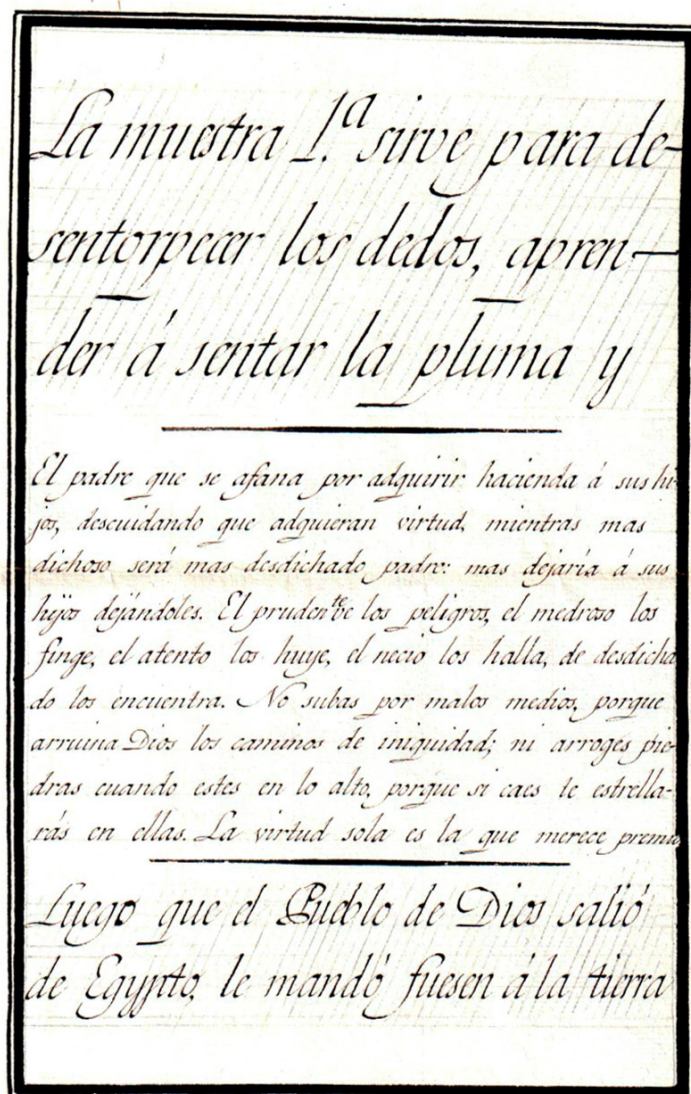 La muestra 1.ª sirve para de-
sentorpecer los dedos, apren-
der á sentar la pluma y
El padre que se afana por adquirir hacienda á sus hi-
jos, descuidando que adquieran virtud, mientras mas
dichoso será mas desdichado padre: mas dejaría á sus
hijos dejándoles. El pruden.te ve los peligros, el medroso los
finge, el atento los huye, el necio los halla, de desdicha
do los encuentra. No subas por malos medios, porque
arruina Dios los caminos de iniquidad; ni arroges pie-
dras cuando estes en lo alto, porque si caes te estrella-
rás en ellas. La virtud sola es la que merece premio,
Luego que el Pueblo de Dios salió
de Egypto, le mandó fuesen á la tierra